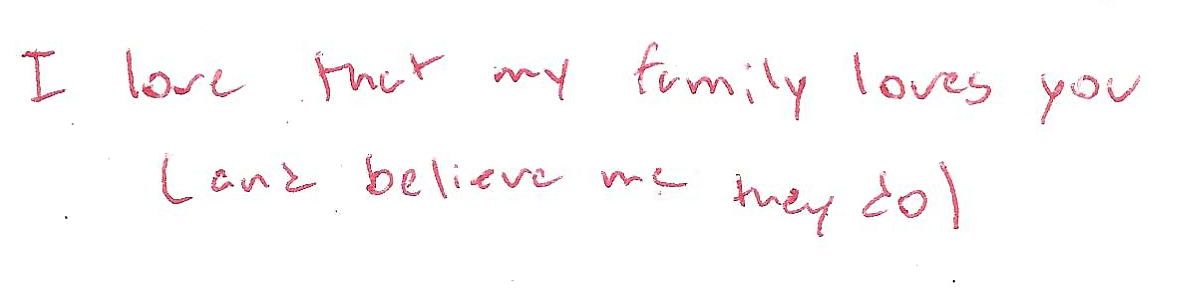 I love that my family loves you
(and believe me they do)